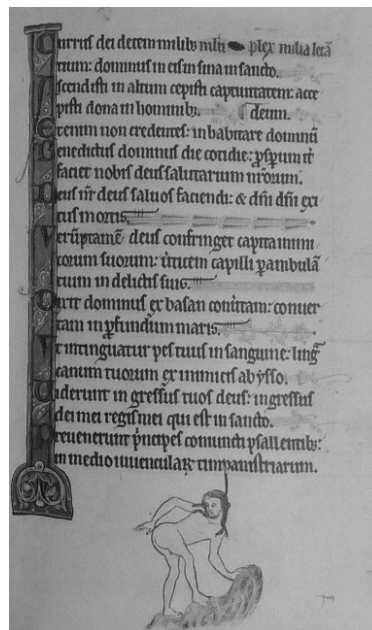 Currus dei decem milibȝ mlti plex milia letā
tium: dominus in eis in sina in sancto.
Ascendisti in altum cepisti captiuitatem: acce
pisti dona in hominibȝ. deum.
Etenim non credentes: inhabitare dominū
Benedictus dominus die cotidie: ꝓsperum it̄
faciet nobis deus salutarium nr̄orum.
Deus nr̄ deus saluos faciendi: & dn̄i dn̄i exi
tus mortis.
Verūptamē deus confringet capita inimi
corum suorum: ūticem capilli ꝑambulā
tium in delictis suis.
Dixit dominus ex basan conūtam: conuer
tam in ꝓfundum maris.
Vt intinguatur pes tuus in sanguine: ling̃
canum tuorum ex inimicis ab ipso.
Viderunt ingressus tuos deus: ingressus
dei mei regis mei qui est in sancto.
Preuenerunt p̄ncipes coniuncti psallentibȝ:
in medio iuuencularꝝ timpanistriarum.